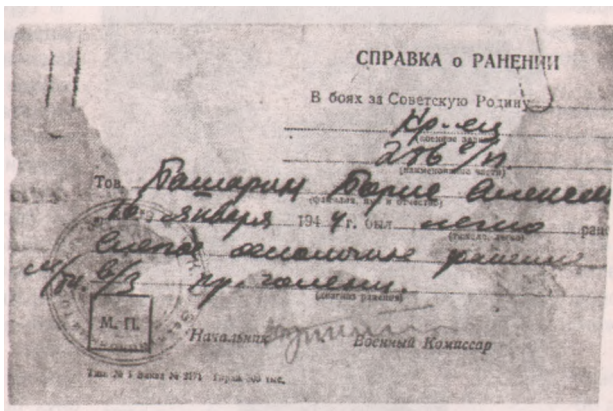 СПРАВКА о РАНЕНИИ
В боях за Советскую Родину
Кр-ец
(военное звание)
276 с/п
(наименование части)
Тов. Башарин Борис Алексе
(фамилия, имя и отчество)
16 января 1944 г. был легко ране
(тяжело, легко)
Слепое осколочное ранение
м/тк. в/з пр. голени.
(диагноз ранения)
М. П.
Начальник Военный Комиссар
Заказ № 3171 Тираж 300 тыс.